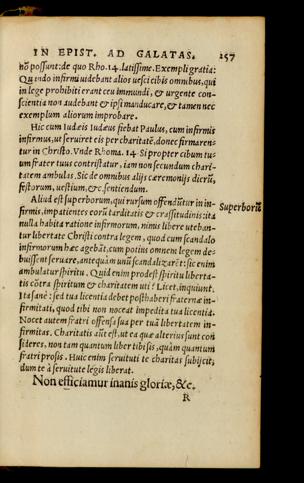 IN EPIST. AD GALATAS. 157
nō possunt: de quo Rho. 14. latissime. Exempli gratia:
Quando infirmi uidebant alios uesci cibis omnibus, qui
in lege prohibiti erant ceu immundi, & urgente con-
scientia non audebant & ipsi manducare, & tamen nec
exemplum aliorum improbare.
Hic cum Iudæis Iudæus fiebat Paulus, cum infirmis
infirmus, ut seruiret eis per charitatē, donec firmaren-
tur in Christo. Vnde Rhoma. 14. Si propter cibum tu-
um frater tuus contristatur, iam non secundum chari-
tatem ambulas. Sic de omnibus alijs cæremonijs dicrū,
festorum, uestium, &c. sentiendum.
Aliud est superborum, qui rursum offendūtur in in-
firmis, impatientes eorū tarditatis & crassitudinis: ita
Superborū
nulla habita ratione infirmorum, nimis libere uteban-
tur libertate Christi contra legem, quod cum scandalo
infirmorum hæc agebāt, cum potius omnem legem de-
buissent seruare, antequàm unū scandalizarēt: sic enim
ambulatur spiritu. Quid enim prodest spiritu liberta-
tis cōtra spiritum & charitatem uti? Licet, inquiunt.
Ita sanè: sed tua licentia debet posthaberi fraternæ in-
firmitati, quod tibi non noceat impedita tua licentia.
Nocet autem fratri offensa sua per tuā libertatem in-
firmitas. Charitatis aūt est, ut ea quæ alterius sunt con
sideres, non tam quantum liber tibi sis, quàm quantum
fratri prosis. Huic enim seruituti te charitas subijcit,
dum te à seruitute legis liberat.
Non efficiamur inanis gloriæ, &c.
R